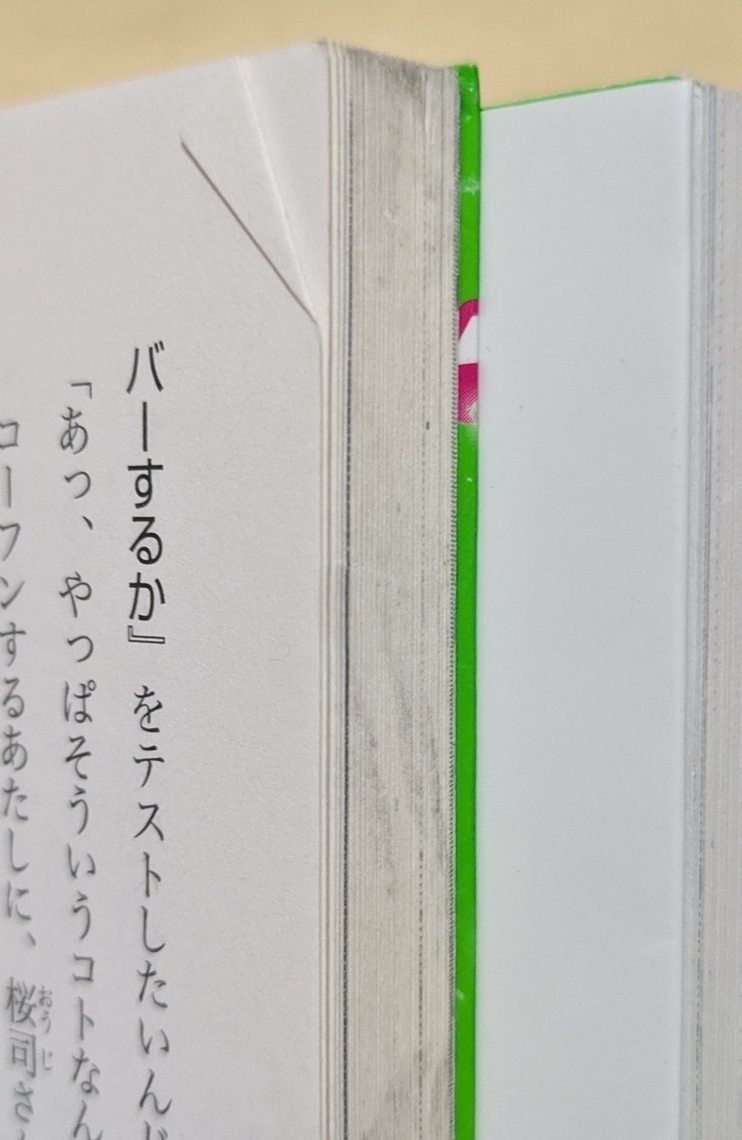 バーするか』をテストしたいんじ
「あっ、やっぱそういうコトなん
コーフンするあたしに、桜司さん
おうじ